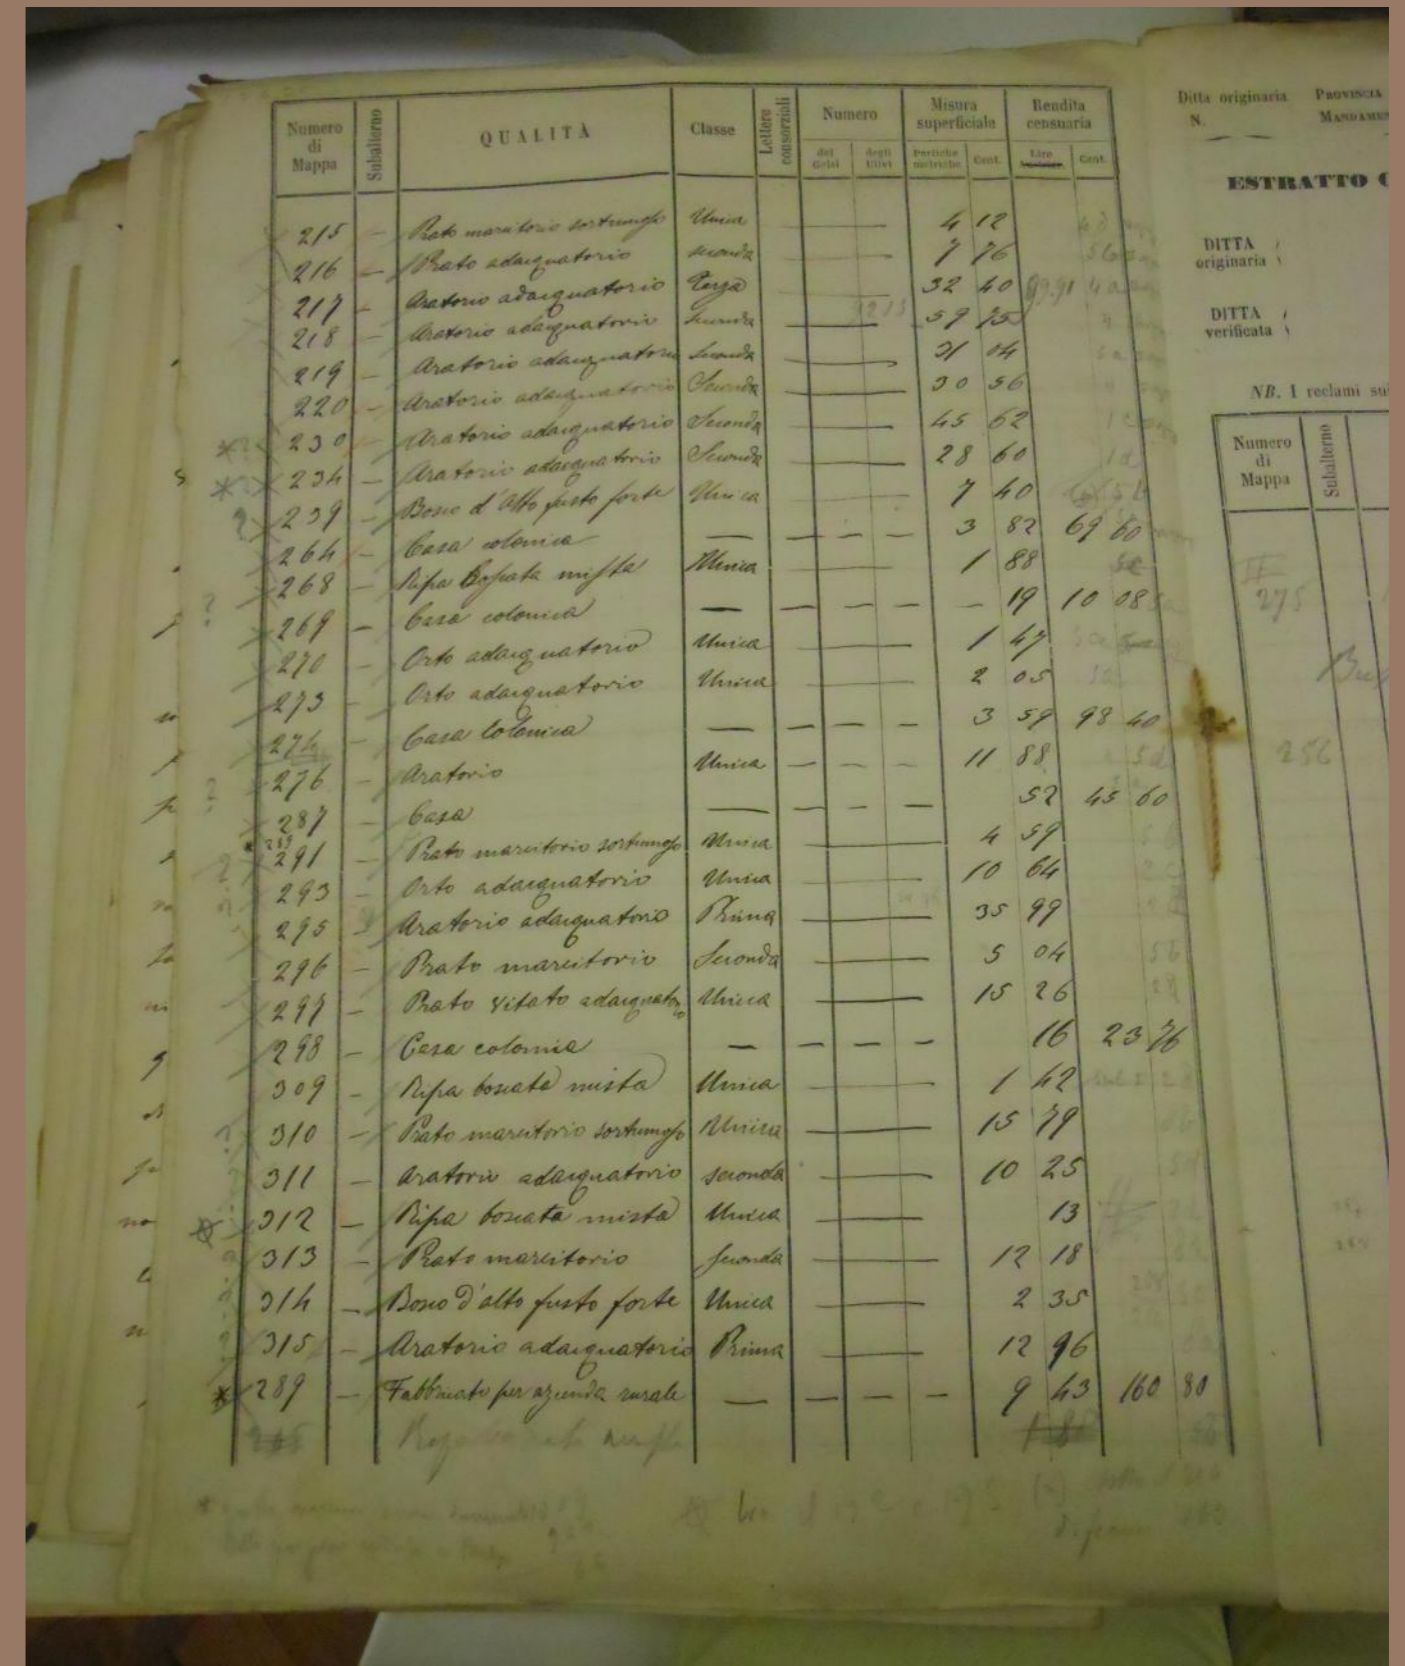 Numero di Mappa Subalterno QUALITÀ Classe Lettere consorziali Numero Misura superficiale Rendita censuaria
dei Gelsi degli Ulivi Pertiche metriche Cent. Lire Cent.
215 — Prato marcitorio sortumoso Unica — 4 12
216 — Prato adacquatorio seconda — 7 76
217 — Aratorio adacquatorio Terza — 32 40
218 — Aratorio adacquatorio Seconda — 59 75
219 — Aratorio adacquatorio Seconda — 31 04
220 — Aratorio adacquatorio Seconda — 30 56
230 — Aratorio adacquatorio Seconda — 45 62
234 — Aratorio adacquatorio Seconda — 28 60
239 — Bosco d'alto fusto forte Unica — 7 40
264 — Casa colonica — — — — 3 82 69 60
268 — Ripa Boscata mista Unica — 1 88
269 — Casa colonica — — — — — 19 10 08
270 — Orto adacquatorio Unica — 1 47
273 — Orto adacquatorio Unica — 2 05
274 — Casa Colonica — — — — 3 59 98 40
276 — Aratorio Unica — — — 11 88
287 — Casa — — — — 52 45 60
291 — Prato marcitorio sortumoso Unica — 4 59
293 — Orto adacquatorio Unica — 10 64
295 — Aratorio adacquatorio Prima — 35 99
296 — Prato marcitorio Seconda — 5 04
297 — Prato vitato adacquatorio Unica — 15 26
298 — Casa colonica — — — — 16 23 76
309 — Ripa boscata mista Unica — 1 42
310 — Prato marcitorio sortumoso Unica — 15 79
311 — Aratorio adacquatorio seconda — 10 25
312 — Ripa boscata mista Unica — 13
313 — Prato marcitorio Seconda — 12 18
314 — Bosco d'alto fusto forte Unica — 2 35
315 — Aratorio adacquatorio Prima — 12 96
* 289 — Fabbricato per azienda rurale — — — — 9 43 160 80
Ditta originaria PROVINCIA
N. MANDAMEN
ESTRATTO
DITTA originaria
DITTA verificata
NB. I reclami su
Numero di Mappa Subalterno
275
256